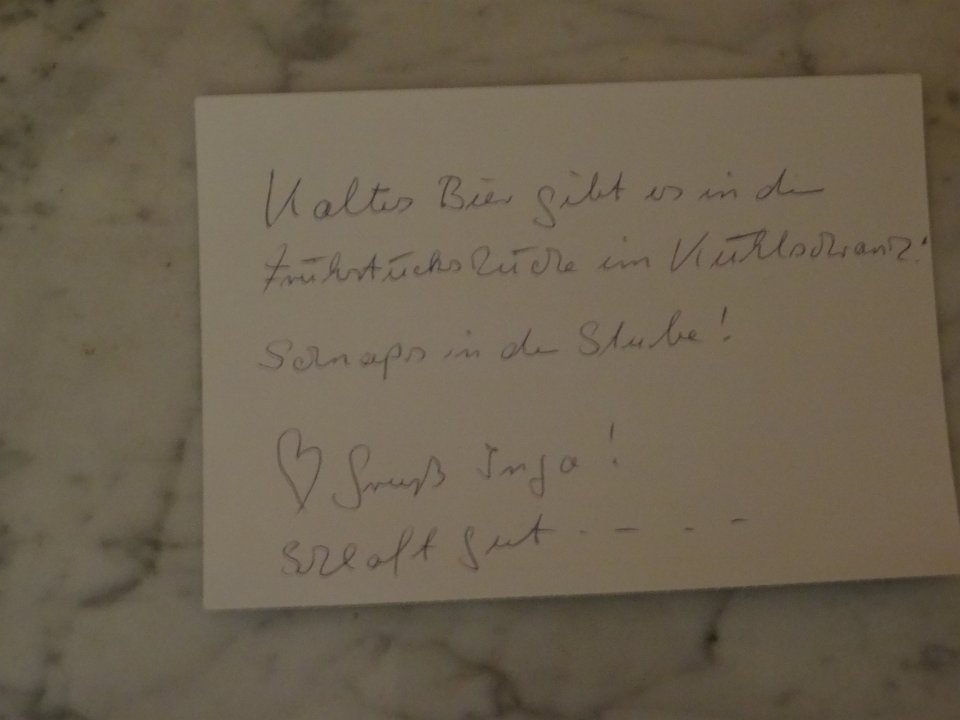 Kaltes Bier gibt es in der
Frühstücksküche im Kühlschrank!
Schnaps in der Stube!
♡ Gruß Inga!
Schlaft gut - - - -